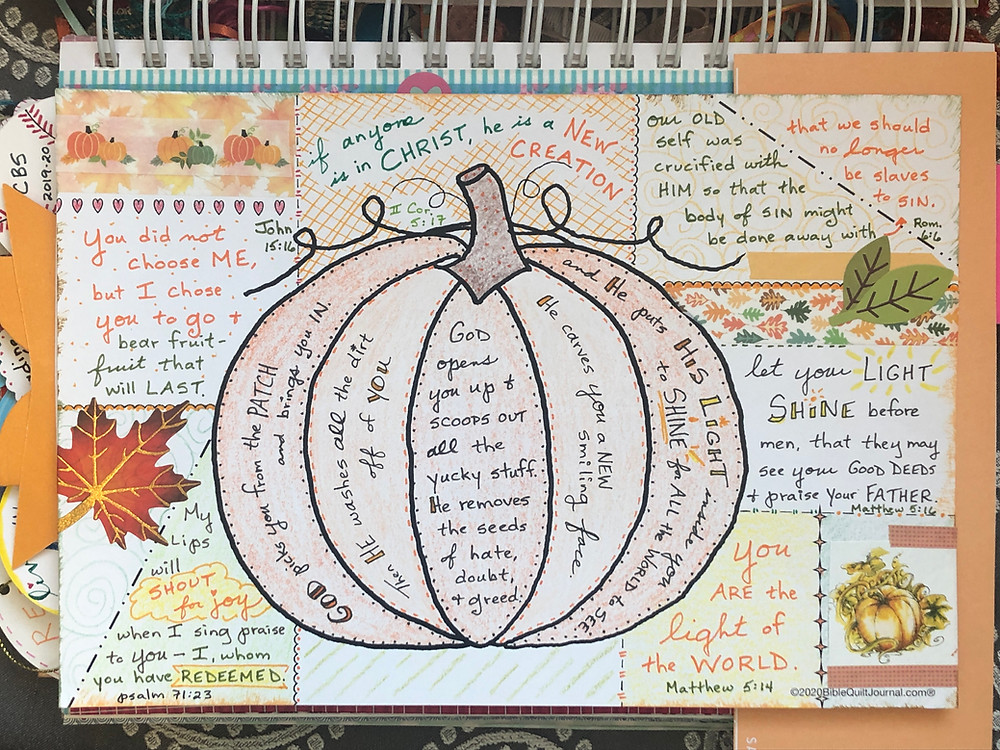 CBS
2019-20
if anyone
is in CHRIST, he is a NEW
CREATION
II Cor.
5:17
our OLD
self was
crucified with
HIM so that the
body of SIN might
be done away with
that we should
no longer
be slaves
to SIN.
Rom.
6:6
You did not
choose ME,
but I chose
you to go +
bear fruit-
fruit that
will LAST.
John
15:16
GOD picks you from the PATCH
and brings you IN.
Then HE washes all the dirt
off of you
GOD
opens
you up +
SCOOPS OUT
all the
yucky stuff.
He removes
the seeds
of hate,
doubt,
+ greed.
He carves you a NEW
smiling face.
and He puts His LIGHT inside you
to SHINE for ALL the WORLD to SEE
let your LIGHT
SHINE before
men, that they may
see your GOOD DEEDS
+ praise your FATHER.
Matthew 5:16
My
Lips
will
SHOUT
for joy
when I sing praise
to you - I, whom
you have REDEEMED.
psalm 71:23
You
ARE the
light of
the WORLD.
Matthew 5:14
©2020BibleQuiltJournal.com®